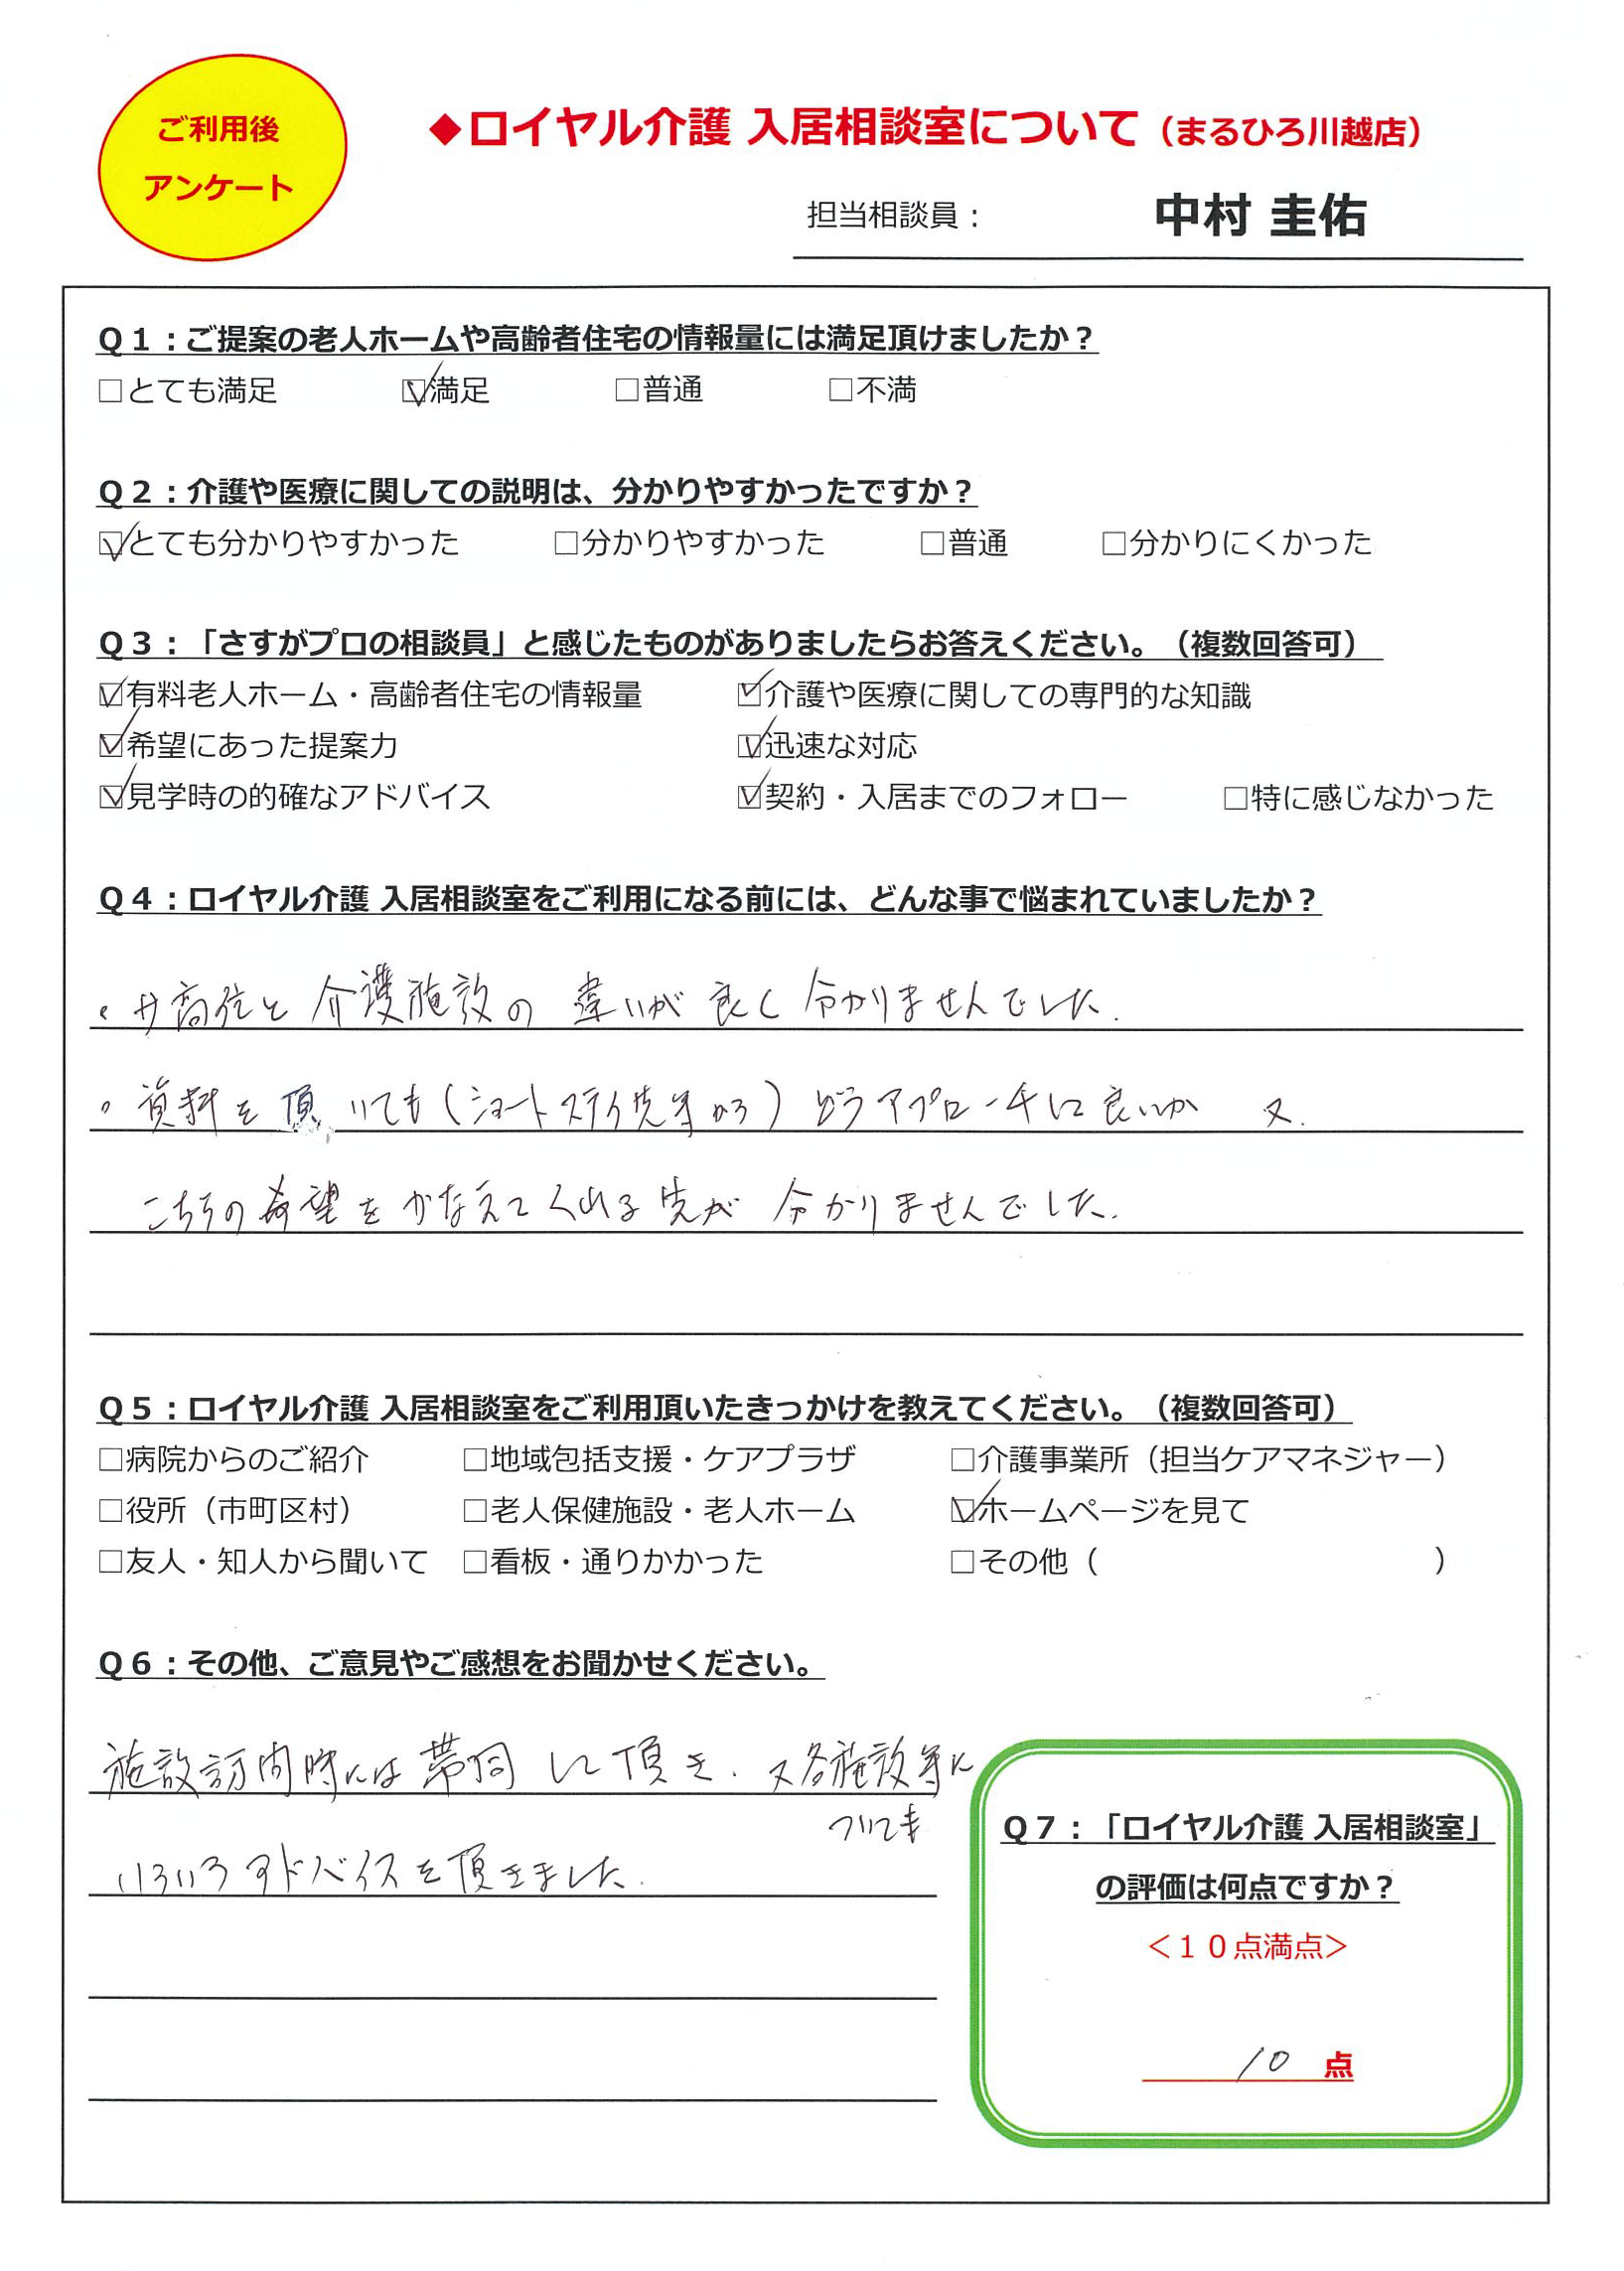 ご利用後
アンケート
◆ロイヤル介護 入居相談室について（まるひろ川越店）
担当相談員： 中村 圭佑
Q１：ご提案の老人ホームや高齢者住宅の情報量には満足頂けましたか？
□とても満足 ☑満足 □普通 □不満
Q２：介護や医療に関しての説明は、分かりやすかったですか？
☑とても分かりやすかった □分かりやすかった □普通 □分かりにくかった
Q３：「さすがプロの相談員」と感じたものがありましたらお答えください。（複数回答可）
☑有料老人ホーム・高齢者住宅の情報量 ☑介護や医療に関しての専門的な知識
☑希望にあった提案力 ☑迅速な対応
☑見学時の的確なアドバイス ☑契約・入居までのフォロー □特に感じなかった
Q４：ロイヤル介護 入居相談室をご利用になる前には、どんな事で悩まれていましたか？
・サ高住と介護施設の違いが良く分かりませんでした.
・資料を頂いても(ショートステイ先等から)どうアプローチして良いか 又.
こちらの希望をかなえてくれる先が分かりませんでした.
Q５：ロイヤル介護 入居相談室をご利用頂いたきっかけを教えてください。（複数回答可）
□病院からのご紹介 □地域包括支援・ケアプラザ □介護事業所（担当ケアマネジャー）
□役所（市町区村） □老人保健施設・老人ホーム ☑ホームページを見て
□友人・知人から聞いて □看板・通りかかった □その他（ ）
Q６：その他、ご意見やご感想をお聞かせください。
施設訪問時には帯同して頂き. 又各施設等に
ついても
いろいろアドバイスを頂きました.
Q７：「ロイヤル介護 入居相談室」
の評価は何点ですか？
＜１０点満点＞
10 点